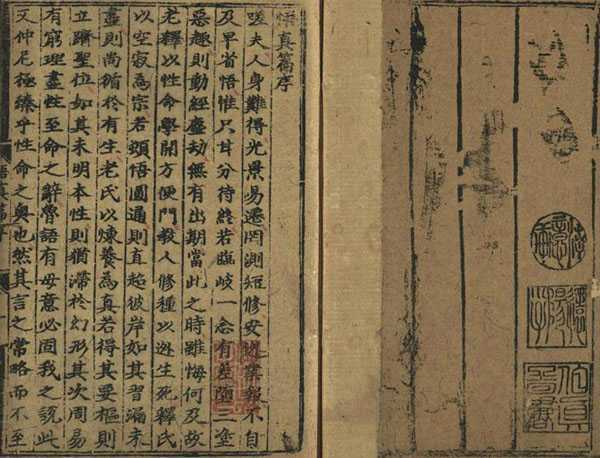 悟真篇序
嗟夫人身難得光景易遷罔測短修安逃業報不自
及早省悟惟只甘分待終若臨岐一念有差墮三塗
惡趣則動經塵劫無有出期當此之時雖悔何及故
老釋以性命學開方便門教人修種以迯生死釋氏
以空寂為宗若頓悟圓通則直超彼岸如其習漏未
盡則尚循於有生老氏以煉養為真若得其要樞則
立躋聖位如其未明本性則猶滯於幻形其次周易
有窮理盡性至命之辭魯語有毋意必固我之說此
又仲尼極臻乎性命之奧也然其言之常略而不至